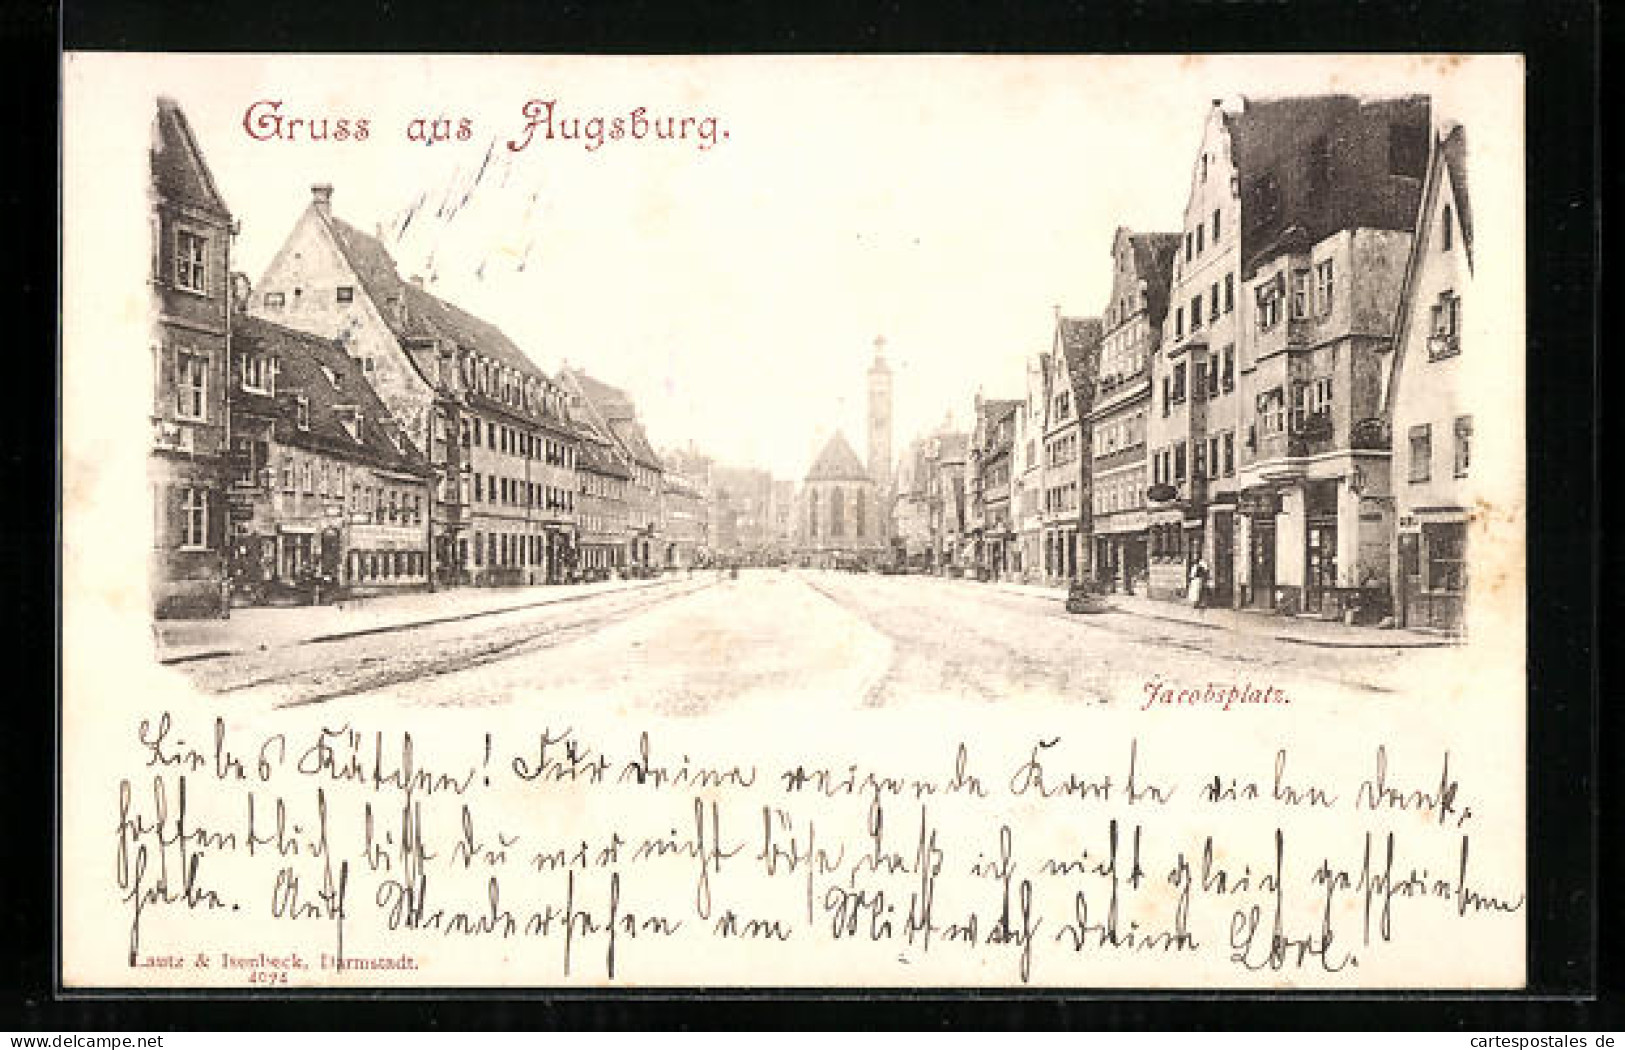 Gruss aus Augsburg.
Jacobsplatz.
Liebes Kätchen! Für Deine reizende Karte vielen Dank,
hoffentlich bist Du mir nicht böse, daß ich nicht gleich geschrieben
habe. Auf Wiedersehen am Mittwoch Deine Lore.
Lautz & Isenbeck, Darmstadt.
4074
www.cartespostales.eu
cartespostales de